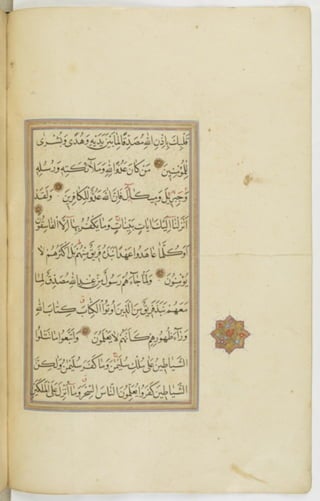 قلبك باذن الله مصدقا لما بين يديه وهدى وبشرى
للمؤمنين من كان عدوا لله وملائكته ورسله
وجبريل وميكال فان الله عدو للكافرين ولقد
انزلنا اليك ايات بينات وما يكفر بها الا الفاسقون
اوكلما عاهدوا عهدا نبذه فريق منهم بل اكثرهم لا
يؤمنون ولما جاءهم رسول من عند الله مصدق لما
معهم نبذ فريق من الذين اوتوا الكتاب كتاب الله
وراء ظهورهم كانهم لا يعلمون واتبعوا ما تتلوا
الشياطين على ملك سليمن وما كفر سليمن ولكن
الشياطين كفروا يعلمون الناس السحر وما انزل على الملكين